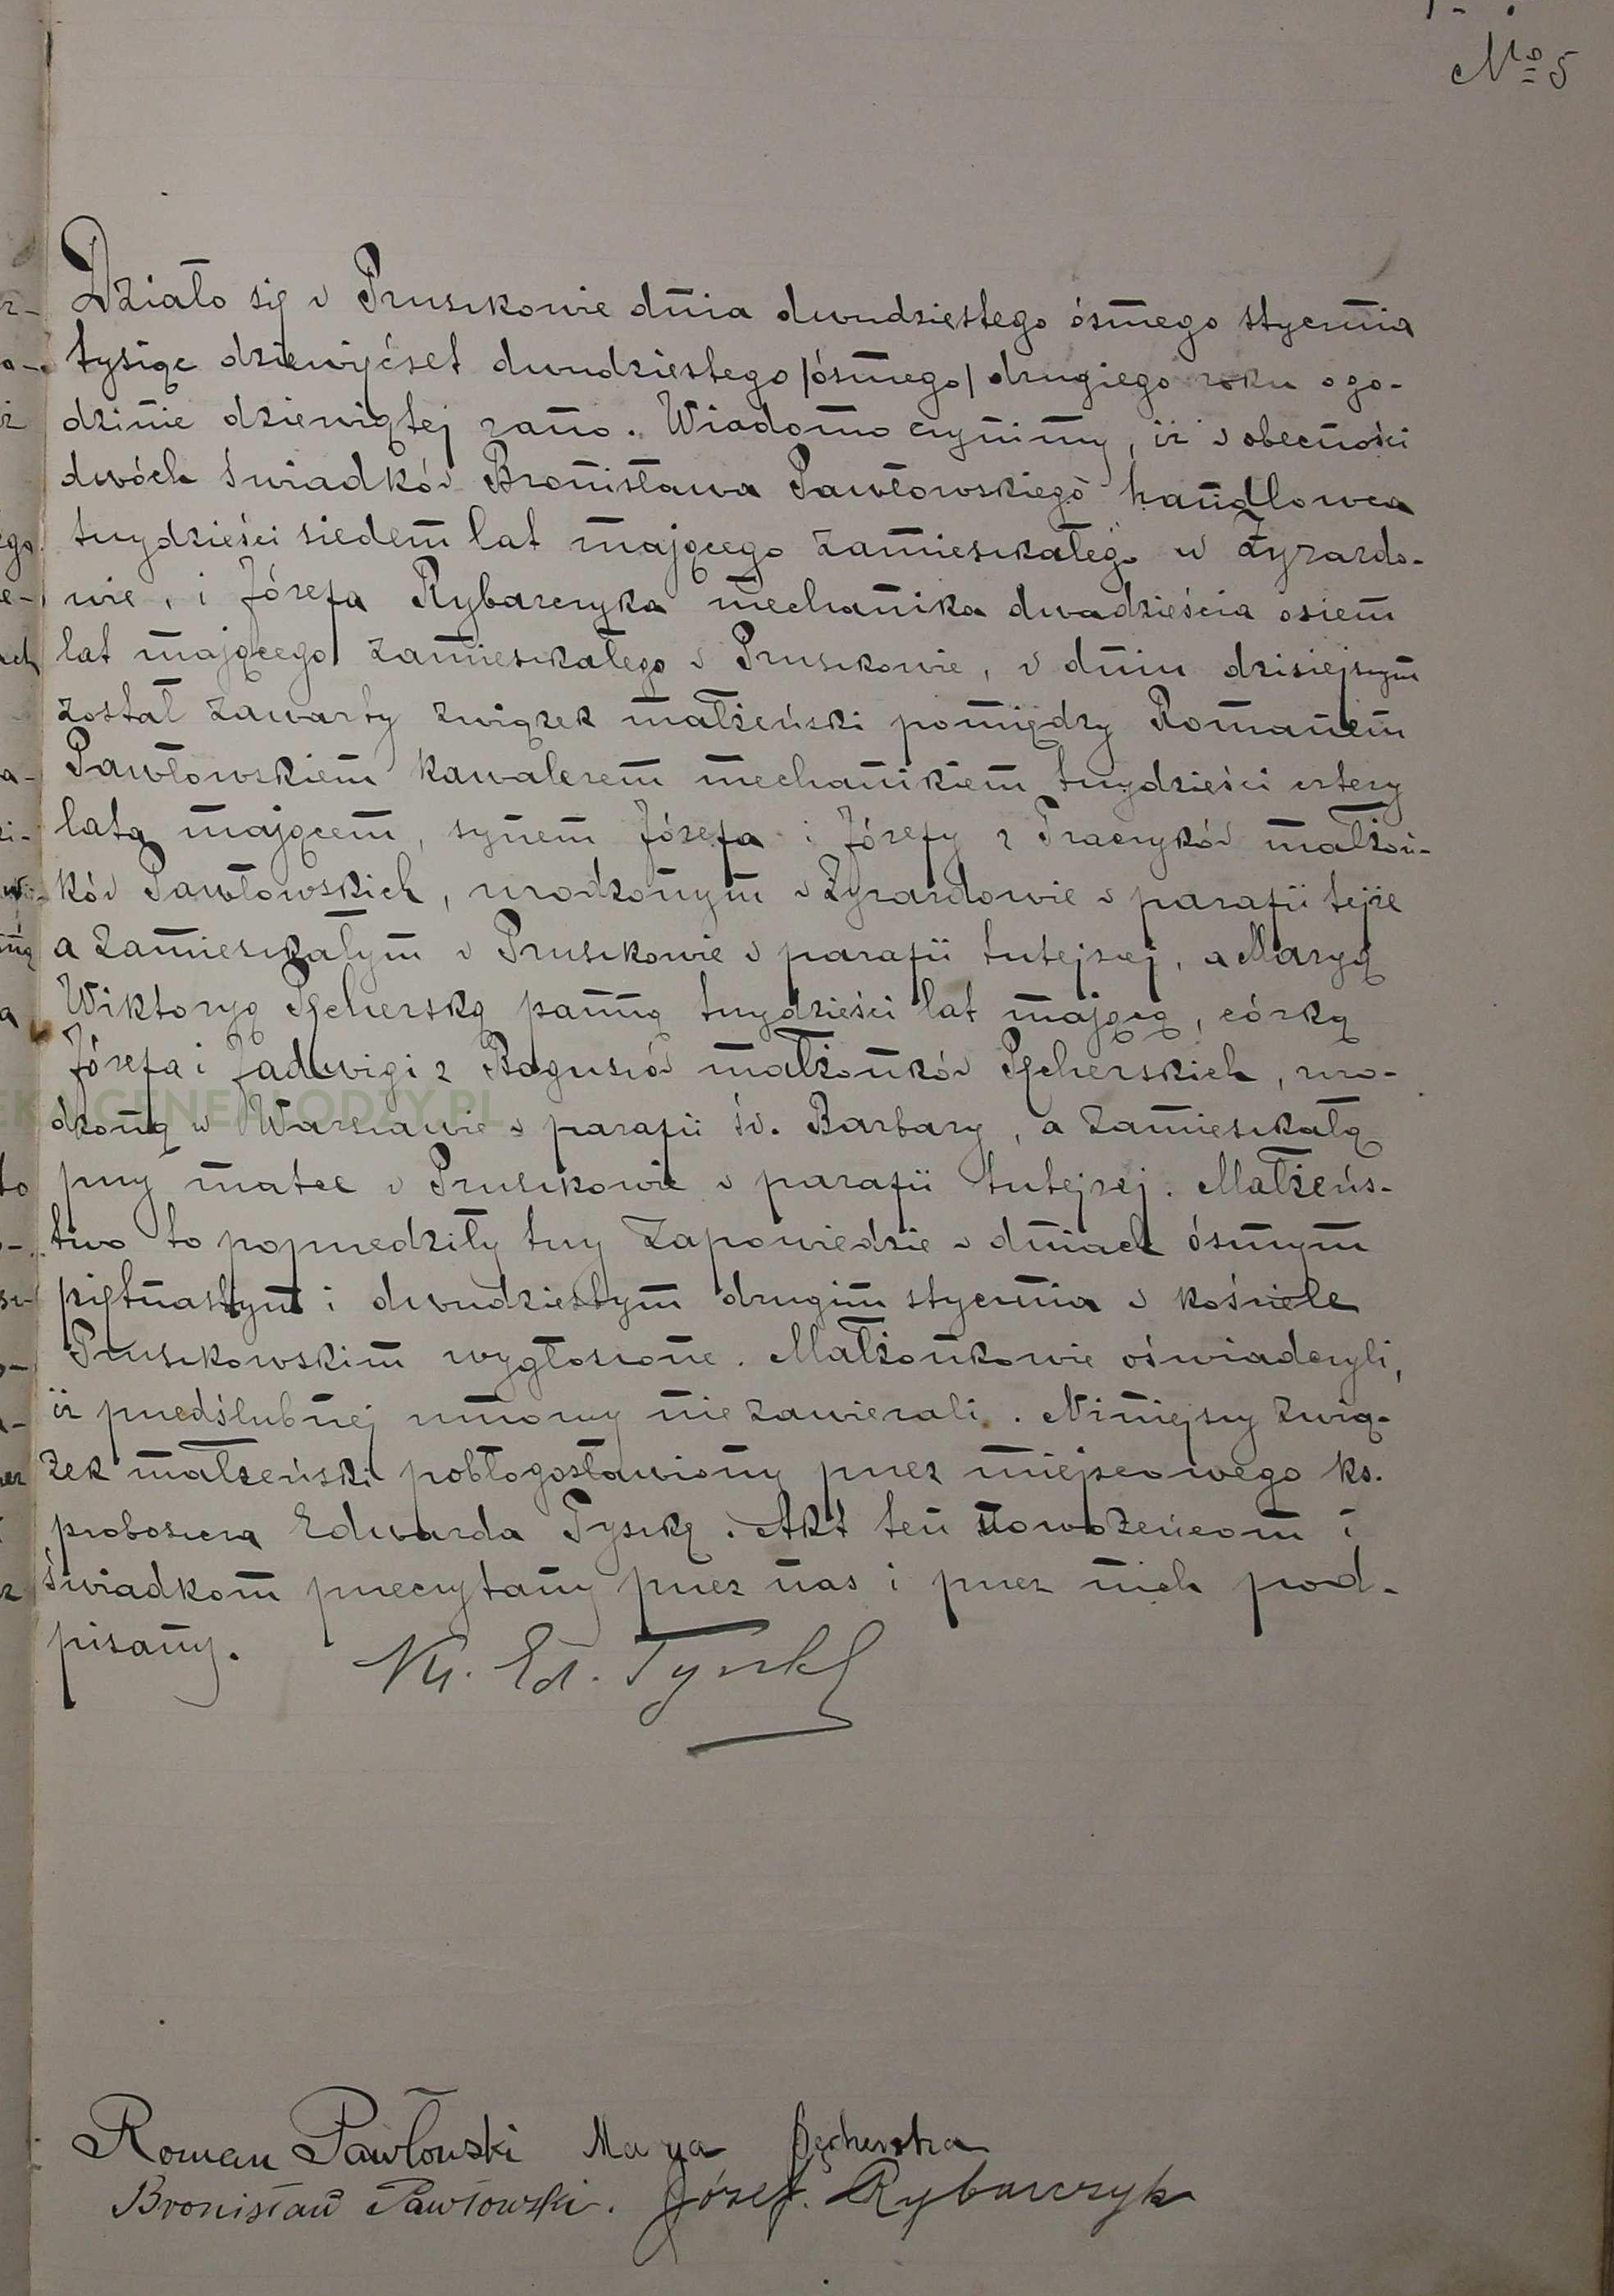 № 5
Działo się w Pruszkowie dnia dwudziestego ósmego stycznia
tysiąc dziewięćset dwudziestego /ósmego/ drugiego roku o go-
dzinie dziewiątej rano. Wiadomo czynimy, iż w obecności
dwóch świadków Bronisława Pawłowskiego handlowca
trzydzieści siedem lat mającego zamieszkałego w Żyrardo-
wie, i Józefa Rybarczyka mechanika dwadzieścia osiem
lat mającego zamieszkałego w Pruszkowie, w dniu dzisiejszym
został zawarty związek małżeński pomiędzy Romanem
Pawłowskiem kawalerem mechanikiem trzydzieści cztery
lata mającem, synem Józefa i Józefy z Traczyków małżon-
ków Pawłowskich, urodzonym w Żyrardowie w parafii tejże
a zamieszkałym w Pruszkowie w parafii tutejszej, a Maryą
Wiktoryą Pęcherską panną trzydzieści lat mającą, córką
Józefa i Jadwigi z Boguszów małżonków Pęcherskich, uro-
dzoną w Warszawie w parafii św. Barbary, a zamieszkałą
przy matce w Pruszkowie w parafii tutejszej. Małżeńs-
two to poprzedziły trzy zapowiedzie w dniach ósmym
piętnastym i dwudziestym drugim stycznia w kościele
Pruszkowskim wygłoszone. Małżonkowie oświadczyli,
iż przedślubnej umowy nie zawierali. Niniejszy zwią-
zek małżeński pobłogosławiony przez miejscowego ks.
proboszcza Edwarda Tyszkę. Akt ten nowożeńcom i
świadkom przeczytany przez nas i przez nich pod-
pisany. Ks. Ed. Tyszka
Roman Pawłowski Marya Pęcherska
Bronisław Pawłowski. Józef. Rybarczyk